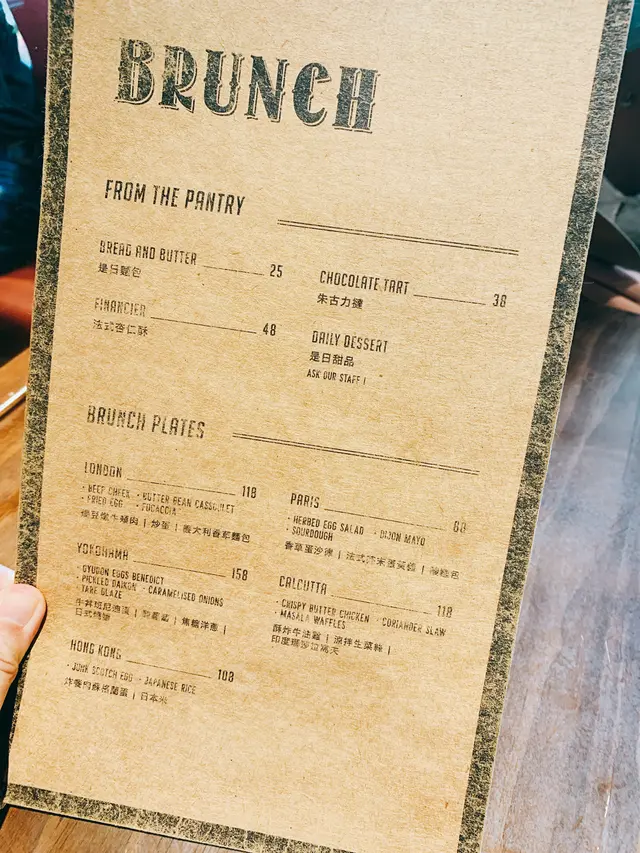 BRUNCH
FROM THE PANTRY
BREAD AND BUTTER 25
是日麵包
FINANCIER 48
法式杏仁酥
CHOCOLATE TART 38
朱古力撻
DAILY DESSERT
是日甜品
ASK OUR STAFF !
BRUNCH PLATES
LONDON 118
· BEEF CHEEK · BUTTER BEAN CASSOULET
· FRIED EGG · FOCACCIA
牛頰肉 | 炒蛋 | 意大利香草麵包
YOKOHAMA 158
· GYUDON EGGS BENEDICT
· PICKLED DAIKON · CARAMELISED ONIONS
· TARE GLAZE
牛丼班尼迪蛋 | | 焦糖洋蔥 |
日式燒汁
HONG KONG 108
· JUNK SCOTCH EGG · JAPANESE RICE
炸餐肉蘇格蘭蛋 | 日本米
PARIS 88
· HERBED EGG SALAD · DIJON MAYO
· SOURDOUGH
香草蛋沙律 | 法式芥末蛋黃醬 | 酸種包
CALCUTTA 118
· CRISPY BUTTER CHICKEN · CORIANDER SLAW
· MASALA WAFFLES
酥炸牛油雞 | 涼拌生菜絲 |
印度瑪莎拉窩夫